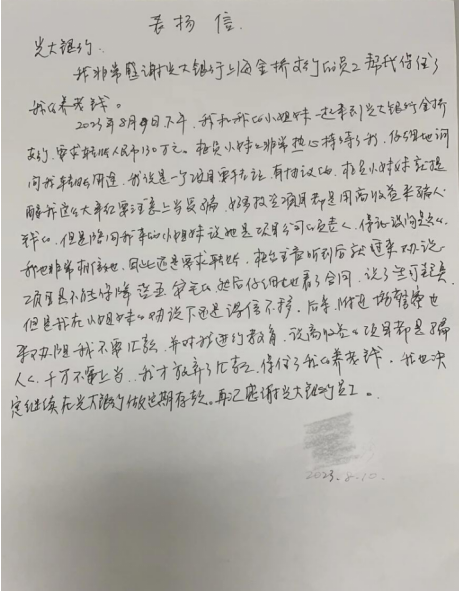 表扬信
光大银行:
我非常感谢光大银行上海金桥支行的员工帮我保住了
我的养老钱。
2023年8月9日下午,我和我的小姐妹一起来到光大银行金桥
支行,要求转账人民币130万元。柜员小妹非常热心接待了我,仔细地询
问我转账的用途,我说是一个项目要,有协议的,柜员小妹就提
醒我这么大年纪要注意上当受骗,好多投资项目都是用高收益来骗人
钱的,但是陪同我来的小姐妹说她是项目公司负责人,保证没问题的。
我也非常相信她,因此还是要求转账,柜台主管听到后就过来劝说,
项目是不能保障资金安全的,然后仔细地看了合同,说了些可疑点,
但是我在小姐妹的劝说下还是深信不移。后来,附近的警察也
来劝阻我不要汇款,并对我进行教育,说高收益的项目都是骗
人的,千万不要上当,我才放弃了汇款,保住了我的养老钱,我也决
定继续在光大银行做定期存款。再次感谢光大银行员工。
2023.8.10.